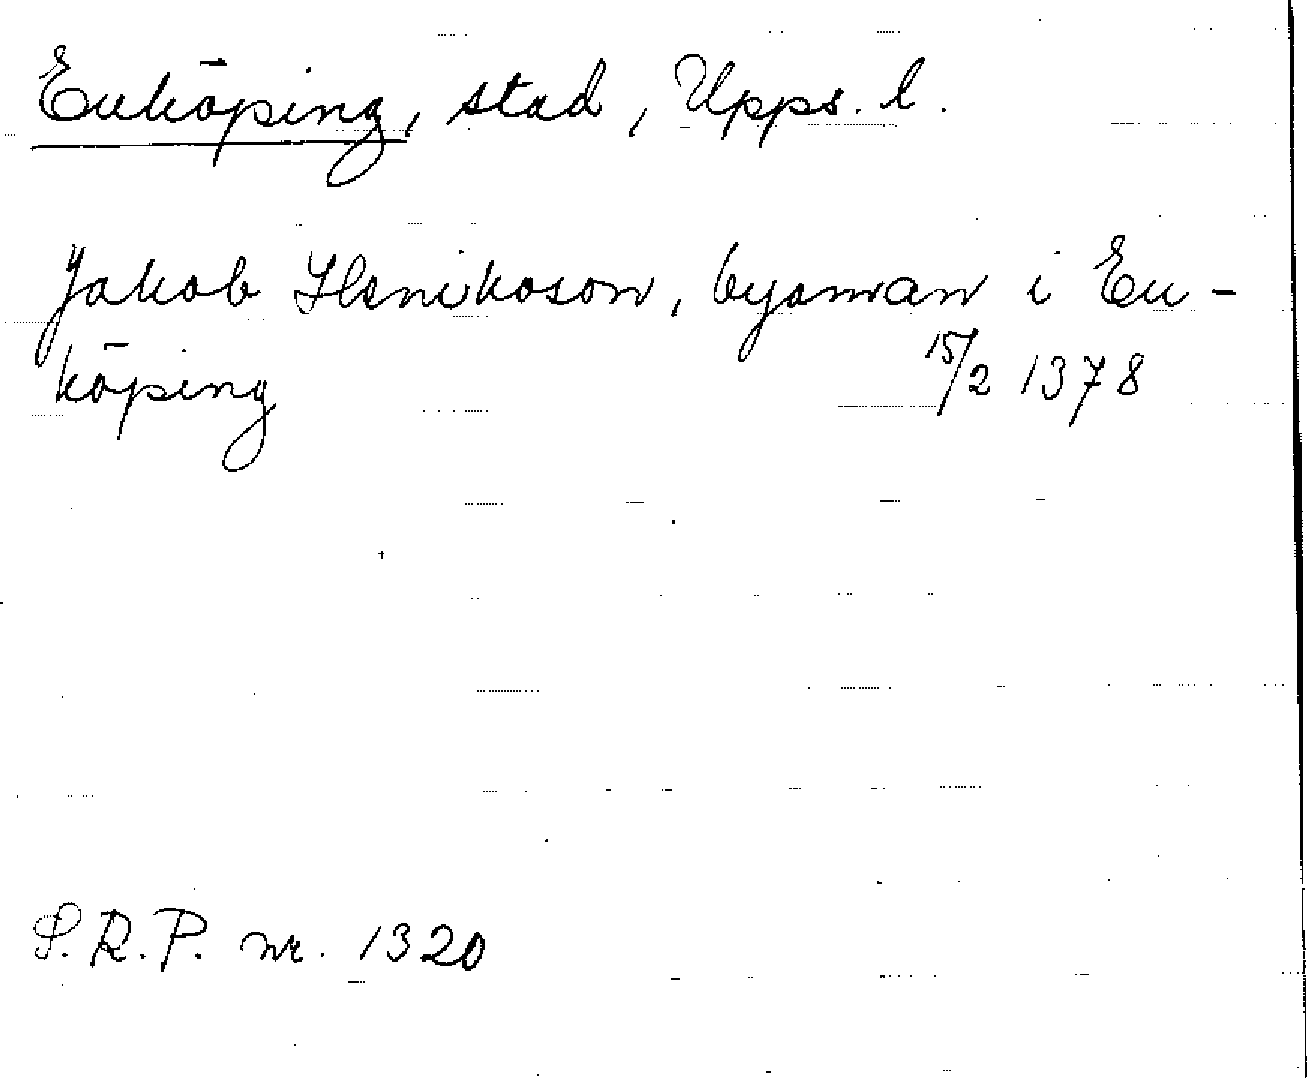 Enköping, stad, Upps. l.
Jakob Henikason, byaman i En-
köping 15/2 1378
S.R.P. nr. 1320